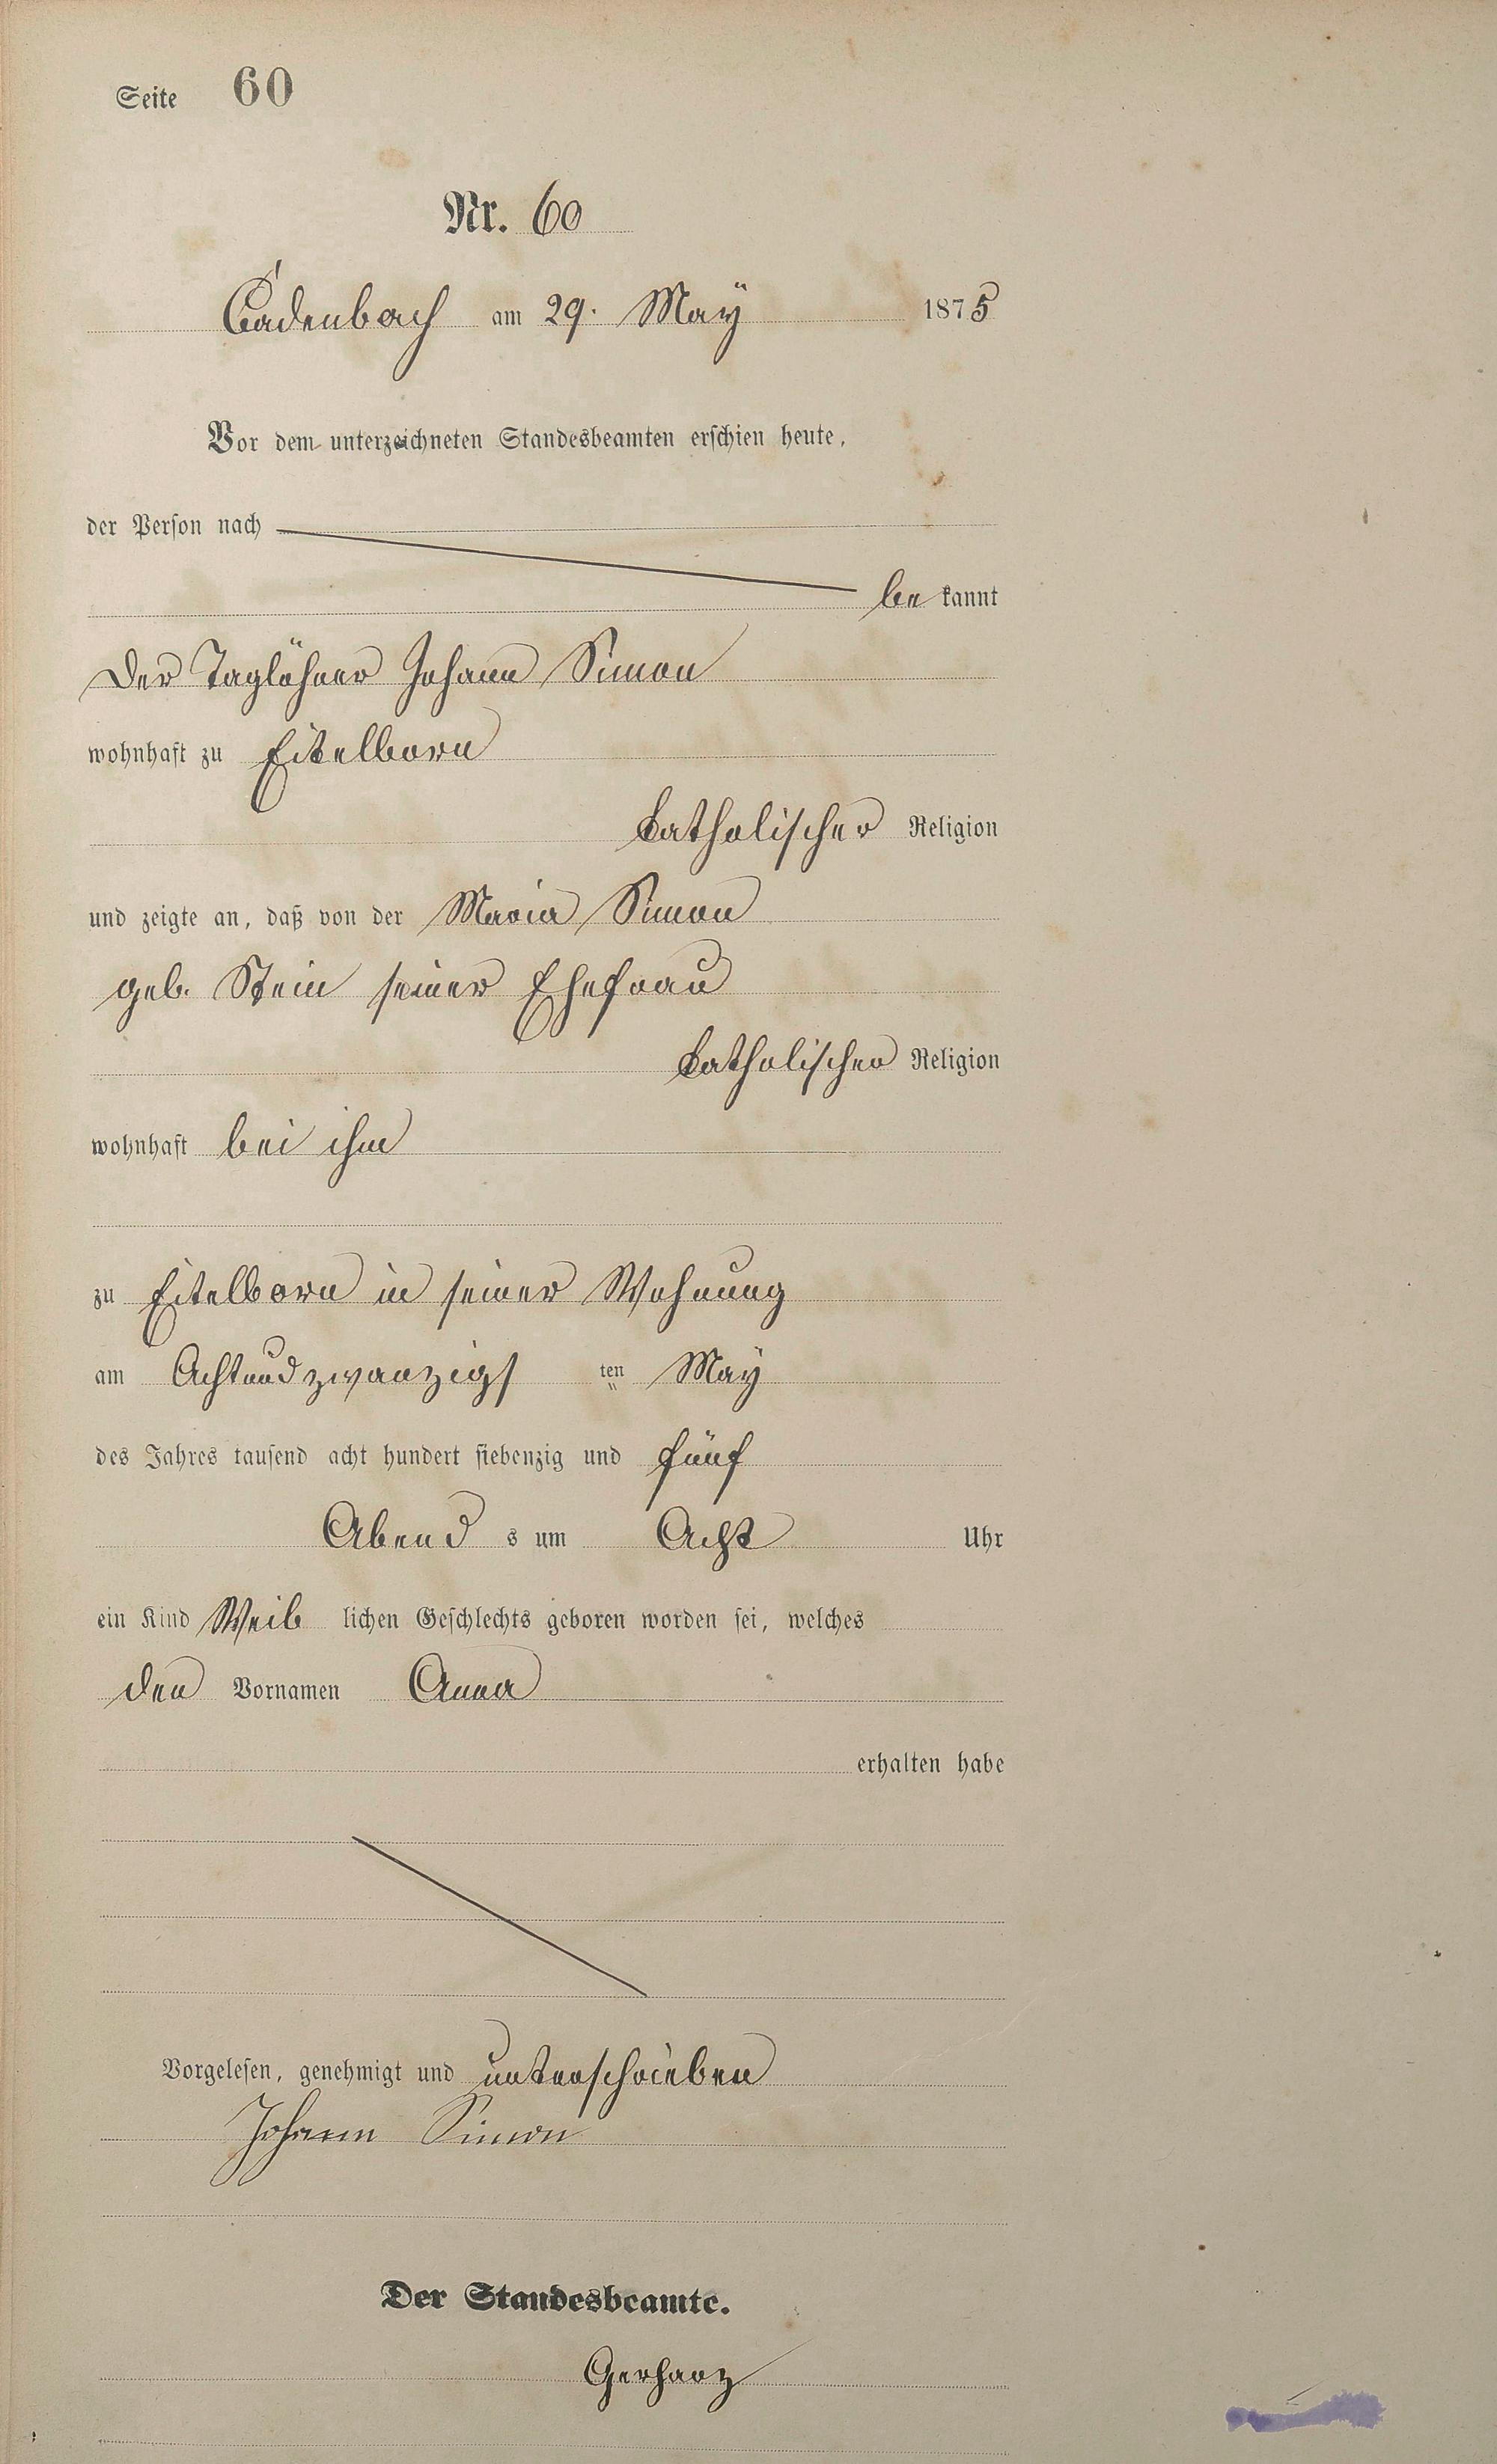 Seite 60
Nr. 60
Cadenbach am 29. Maÿ 1875
Vor dem unterzeichneten Standesbeamten erschien heute,
der Person nach
be kannt
der Taglöhner Johann Simon
wohnhaft zu Eitelborn
katholischer Religion
und zeigte an, daß von der Maria Simon
geb. Stein seiner Ehefrau
katholischer Religion
wohnhaft bei ihm
zu Eitelborn in seiner Wohnung
am Achtundzwanzigs ten Maÿ
des Jahres tausend acht hundert siebenzig und fünf
Abend s um Acht Uhr
ein Kind Weib lichen Geschlechts geboren worden sei, welches
den Vornamen Anna
erhalten habe
Vorgelesen, genehmigt und unterschrieben
Johann Simon
Der Standesbeamte.
Gerharz